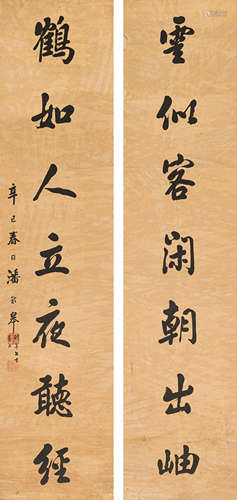 雲似客閑朝出岫
鶴如人立夜聽經
辛巳春日潘齡皋